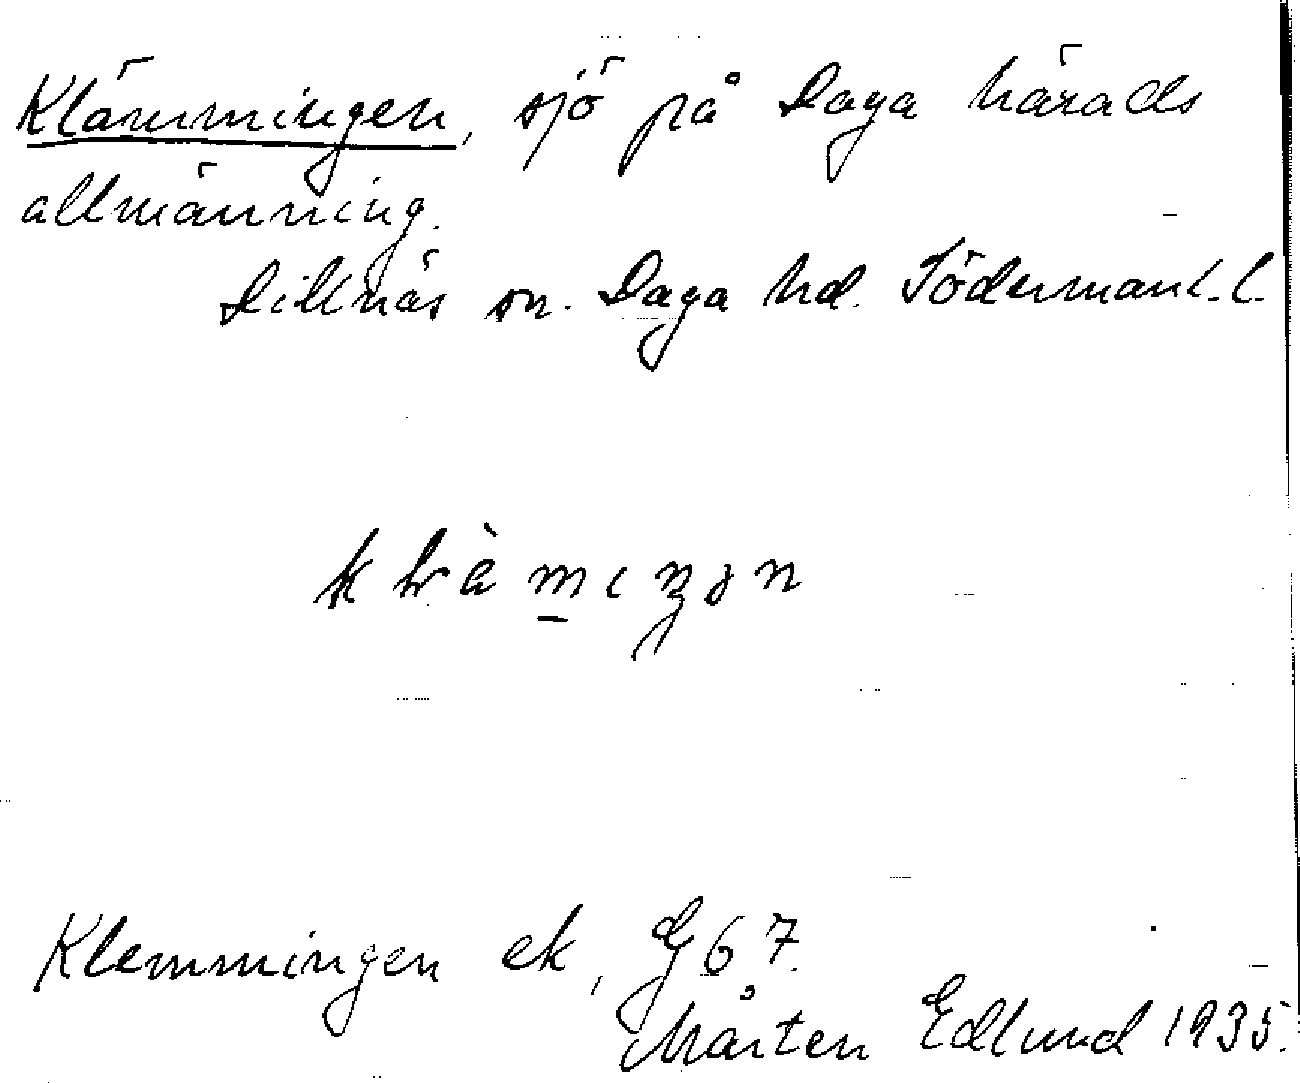 Klämmingen, sjö på Daga härads
allmänning.
Dillnäs sn. Daga hd. Södermanl. l.
Klemmingen ek, G67.
Mårten Edlund 1935.